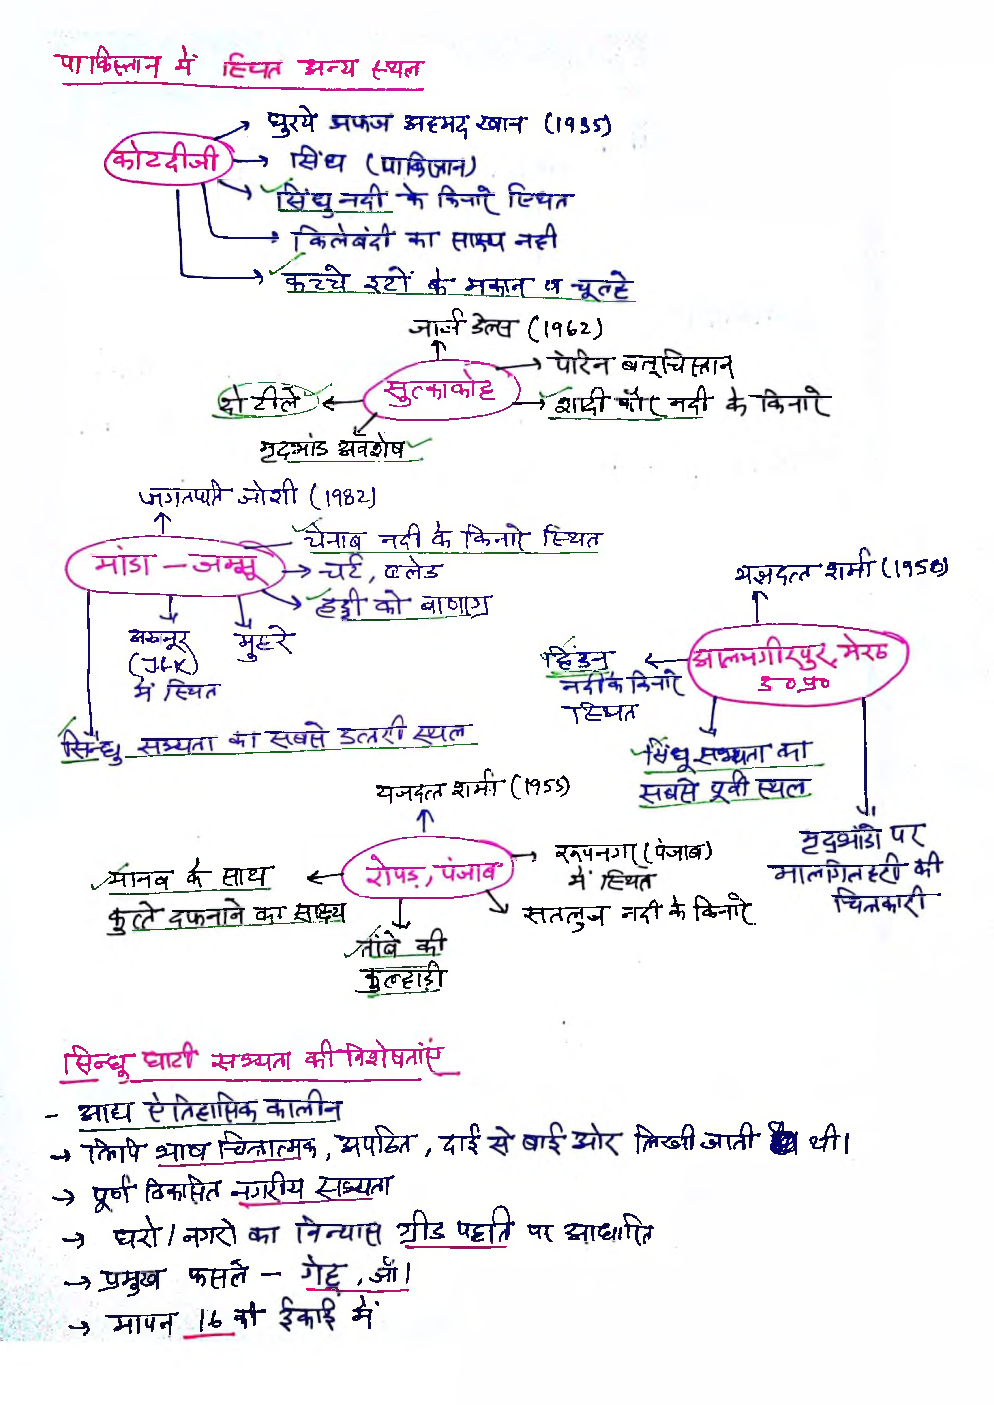 पाकिस्तान में स्थित अन्य स्थल
धुरये अफज अहमद खान (1935)
कोटदीजी
सिंध (पाकिस्तान)
सिंधु नदी के किनारे स्थित
किलेबंदी का साक्ष्य नही
कच्चे इटों के मकान व चूल्हे
जार्ज डेल्स (1962)
सुत्काकोह
पेरिन बलूचिस्तान
दो टीले
शादी कौर नदी के किनारे
मृदभांड अवशेष
जगतपति जोशी (1982)
मांडा – जम्मू
चेनाब नदी के किनारे स्थित
चर्ट, ब्लेड
हड्डी को बाणाग्र
अखनूर
(J&K)
में स्थित
मुहरे
सिन्धु सभ्यता का सबसे उत्तरी स्थल
यज्ञदत्त शर्मा (1958)
आलमगीरपुर, मेरठ
उ०प्र०
हिंडन
नदी के किनारे
स्थित
सिंधू सभ्यता का
सबसे पूर्वी स्थल
मृदभांडो पर
गिलहरी की
चित्रकारी
यज्ञदत्त शर्मा (1955)
रोपड़, पंजाब
रूपनगर (पंजाब)
में स्थित
सतलुज नदी के किनारे
मानव के साथ
कुत्ते दफनाने का साक्ष्य
तांबे की
कुल्हाड़ी
सिन्धु घाटी सभ्यता की विशेषताएं
- आद्य ऐतिहासिक कालीन
→ लिपि भाव चित्रात्मक, अपठित, दाई से बाई ओर लिखी जाती थी।
→ पूर्ण विकसित नगरीय सभ्यता
→ घरो/नगरो का विन्यास ग्रीड पद्दति पर आधारित
→ प्रमुख फसले – गेहू, जौ।
→ मापन 16 की ईकाई में